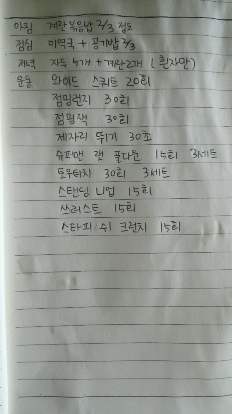 아침 계란볶음밥 2/3 정도
점심 미역국 + 공기밥 2/3
저녁 자두 4개 + 계란2개 (흰자만)
운동 와이드 스쿼트 20회
점핑런지 30회
점핑잭 30회
제자리 뛰기 30초
슈퍼맨 랫 풀다운 15회 3세트
토우터치 30회 3세트
스탠딩 니업 15회
쓰러스트 15회
스타피쉬 크런치 15회